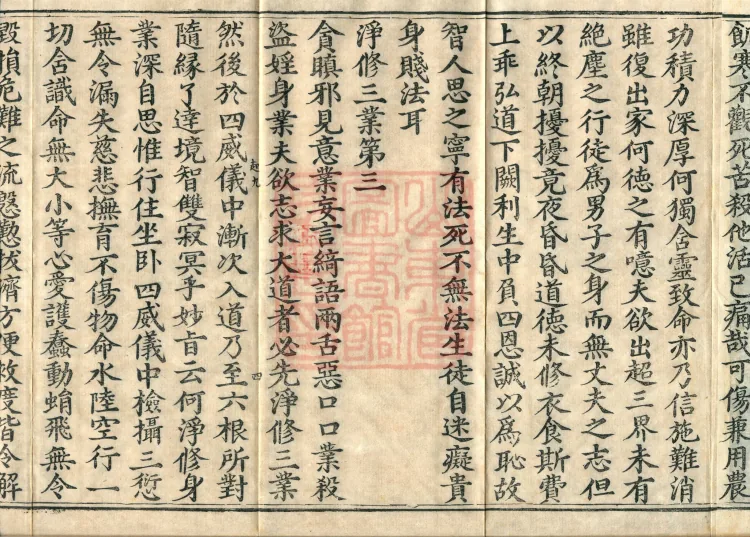 飾寒不觀死苦殺他活己痛哉可傷兼用農
功積力深厚何獨含靈致命亦乃信施難消
雖復出家何德之有噫夫欲出超三界未有
絕塵之行徒爲男子之身而無丈夫之志但
以終朝擾擾竟夜昏昏道德未修衣食斯費
上乖弘道下闕利生中負四恩誠以爲恥故
智人思之寧有法死不無法生徒自迷癡貴
身賤法耳
淨修三業第三
貪瞋邪見意業妄言綺語兩舌惡口口業殺
盜婬身業夫欲志求大道者必先淨修三業
然後於四威儀中漸次入道乃至六根所對
隨緣了達境智雙寂冥乎妙旨云何淨修身
業深自思惟行住坐卧四威儀中檢攝三愆
無令漏失慈悲撫育不傷物命水陸空行一
切含識命無大小等心愛護蠢動蜎飛無令
毀損危難之流慇懃拔濟方便救度皆令解